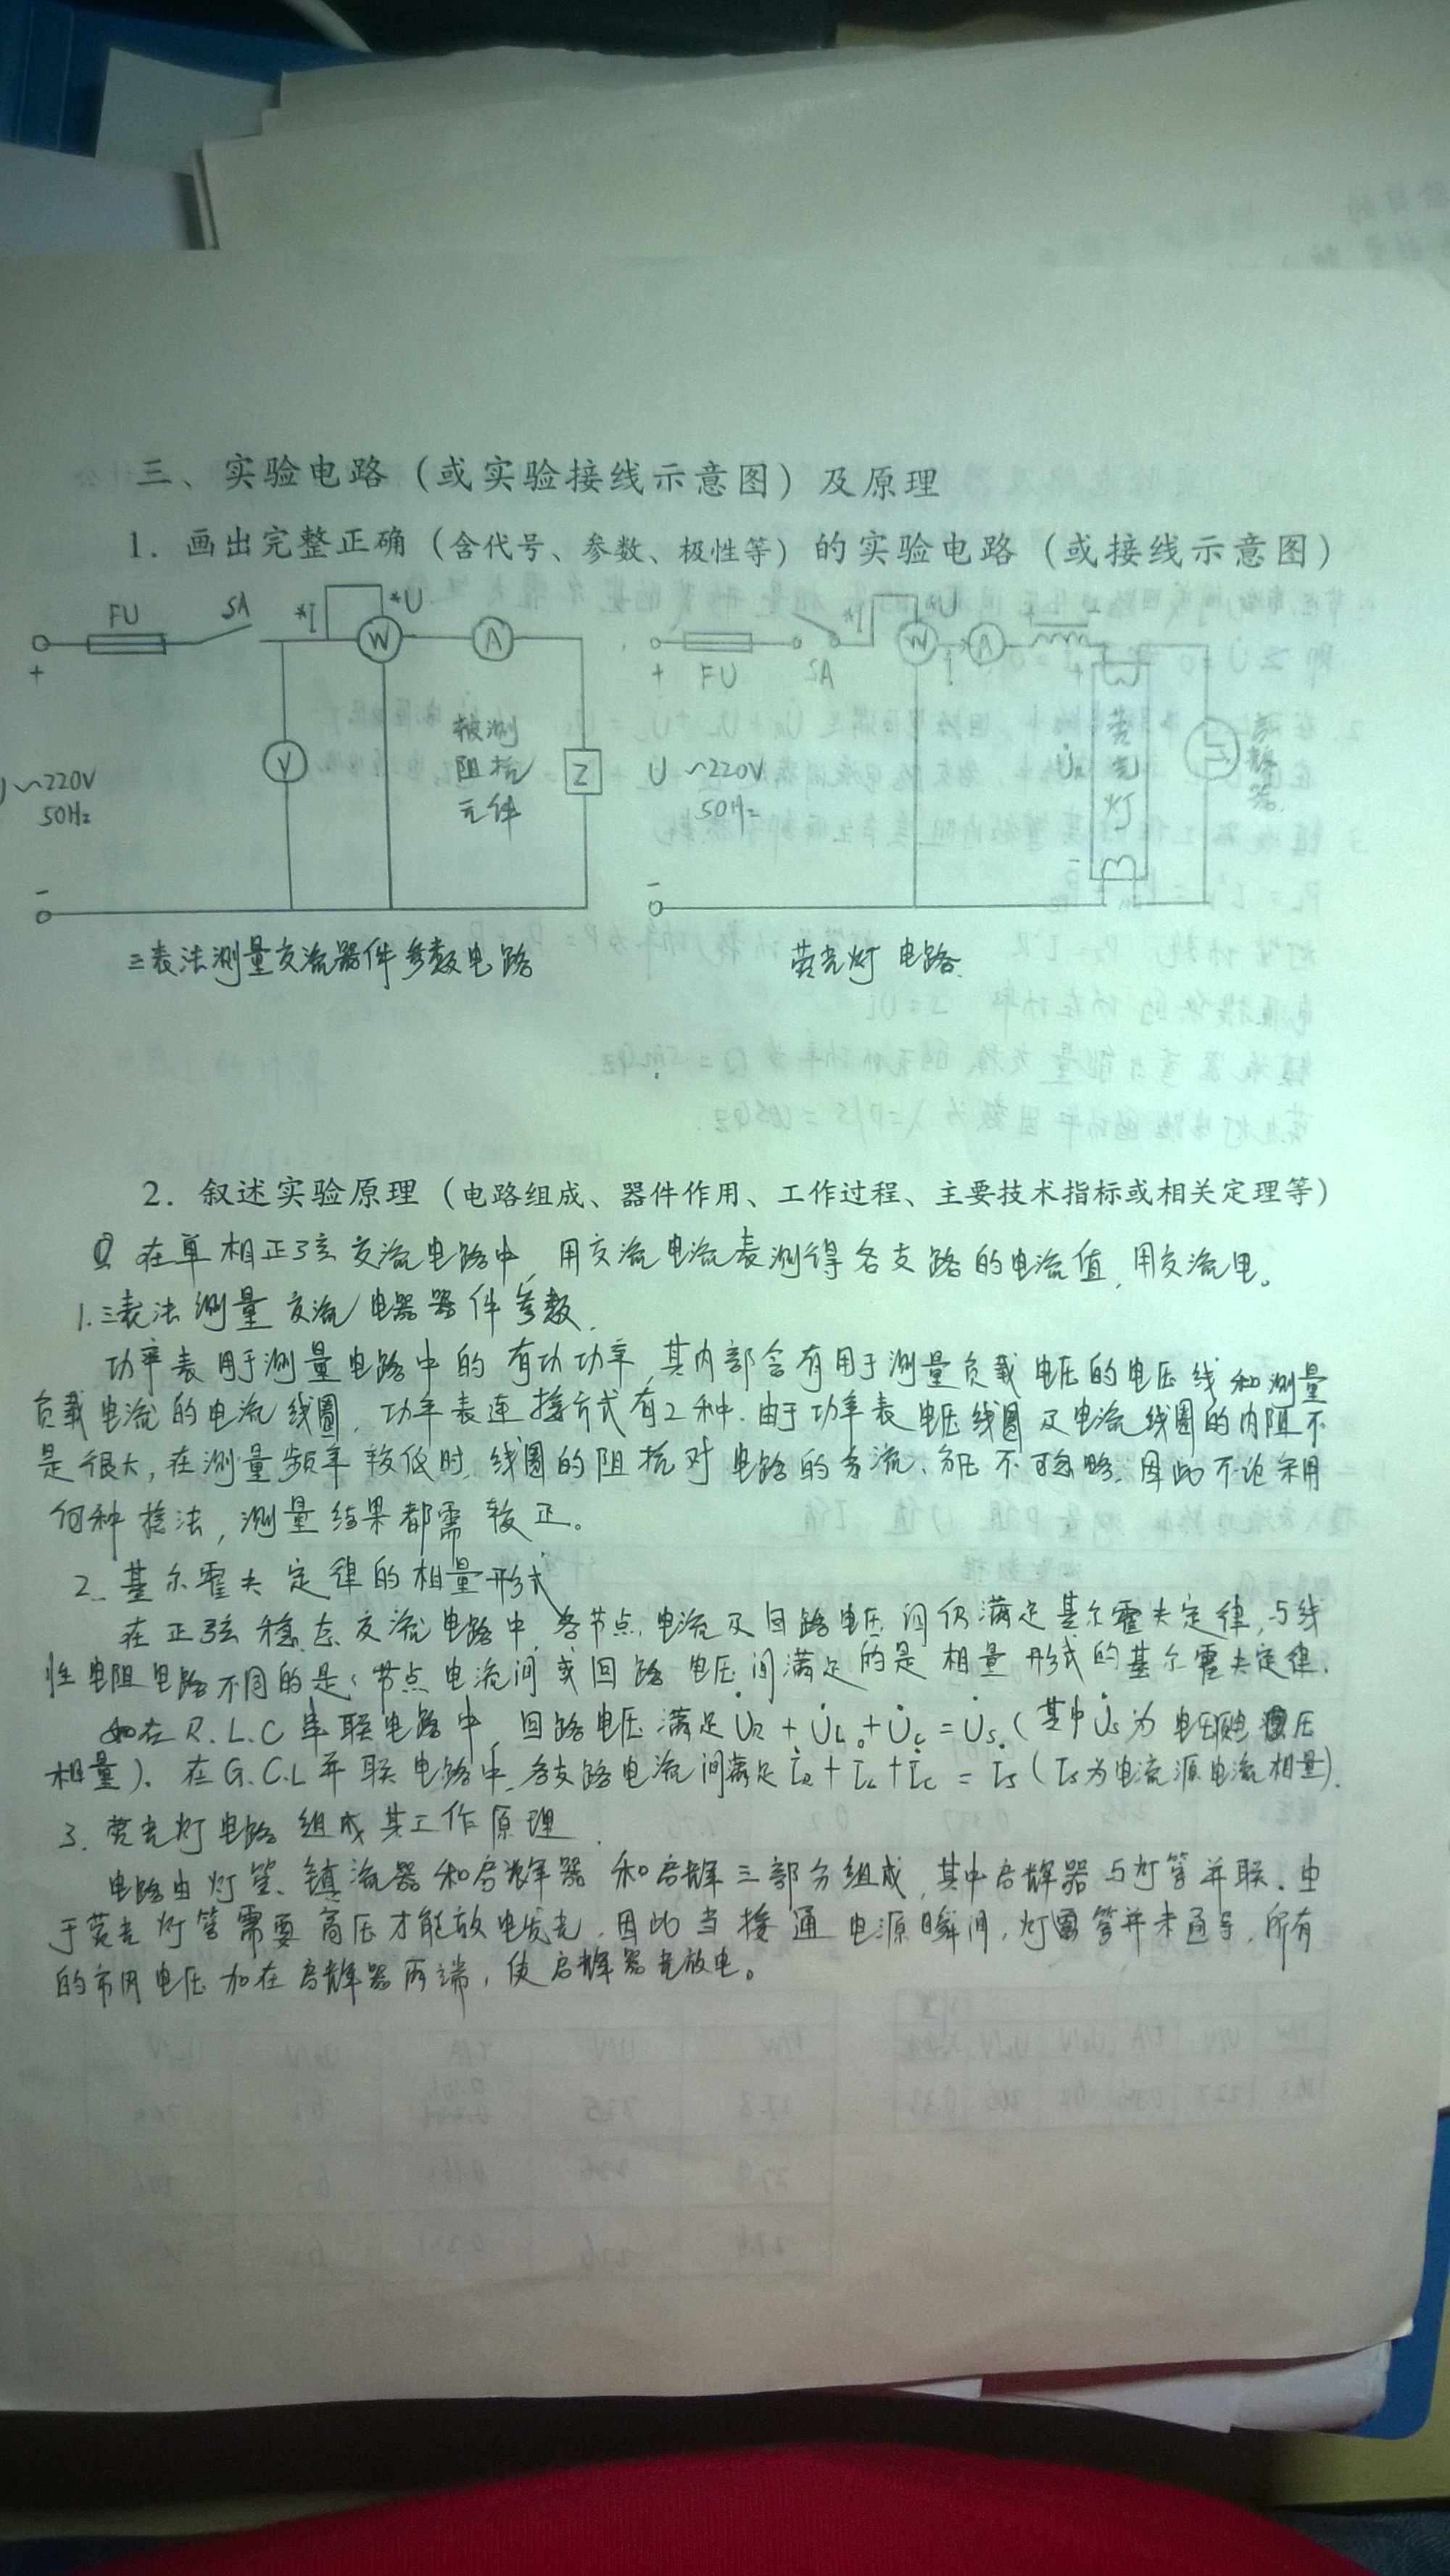 三、实验电路（或实验接线示意图）及原理
1. 画出完整正确（含代号、参数、极性等）的实验电路（或接线示意图）
FU SA *I *U W A
+
V
被测
阻抗
元件
Z
U ~220V
50Hz
-
三表法测量交流器件参数电路
+ FU SA *I *U W A
U ~220V
50Hz
荧光灯
-
荧光灯电路
2. 叙述实验原理（电路组成、器件作用、工作过程、主要技术指标或相关定理等）
在单相正弦交流电路中，用交流电流表测得各支路的电流值，用交流电。
1.三表法测量交流电器器件参数.
功率表用于测量电路中的有功功率，其内部含有用于测量负载电压的电压线和测量
负载电流的电流线圈，功率表连接方式有2种.由于功率表电压线圈及电流线圈的内阻不
是很大，在测量频率较低时，线圈的阻抗对电路的分流、分压不可忽略.因此不论采用
何种接法，测量结果都需较正。
2. 基尔霍夫定律的相量形式
在正弦稳态交流电路中，各节点电流及回路电压间仍满足基尔霍夫定律，与线
性电阻电路不同的是：节点电流间或回路电压间满足的是相量形式的基尔霍夫定律.
如在R.L.C串联电路中，回路电压满足U̇R + U̇L + U̇C = U̇S.（其中U̇S为电压
相量）. 在G.C.L并联电路中，各支路电流间满足İR + İL + İC = İS（İS为电流源电流相量）.
3. 荧光灯电路组成其工作原理.
电路由灯管、镇流器和启辉器和启辉三部分组成，其中启辉器与灯管并联.由
于荧光灯管需要高压才能放电发光，因此当接通电源瞬间，灯管并未通导，所有
的市网电压加在启辉器两端，使启辉器充放电。